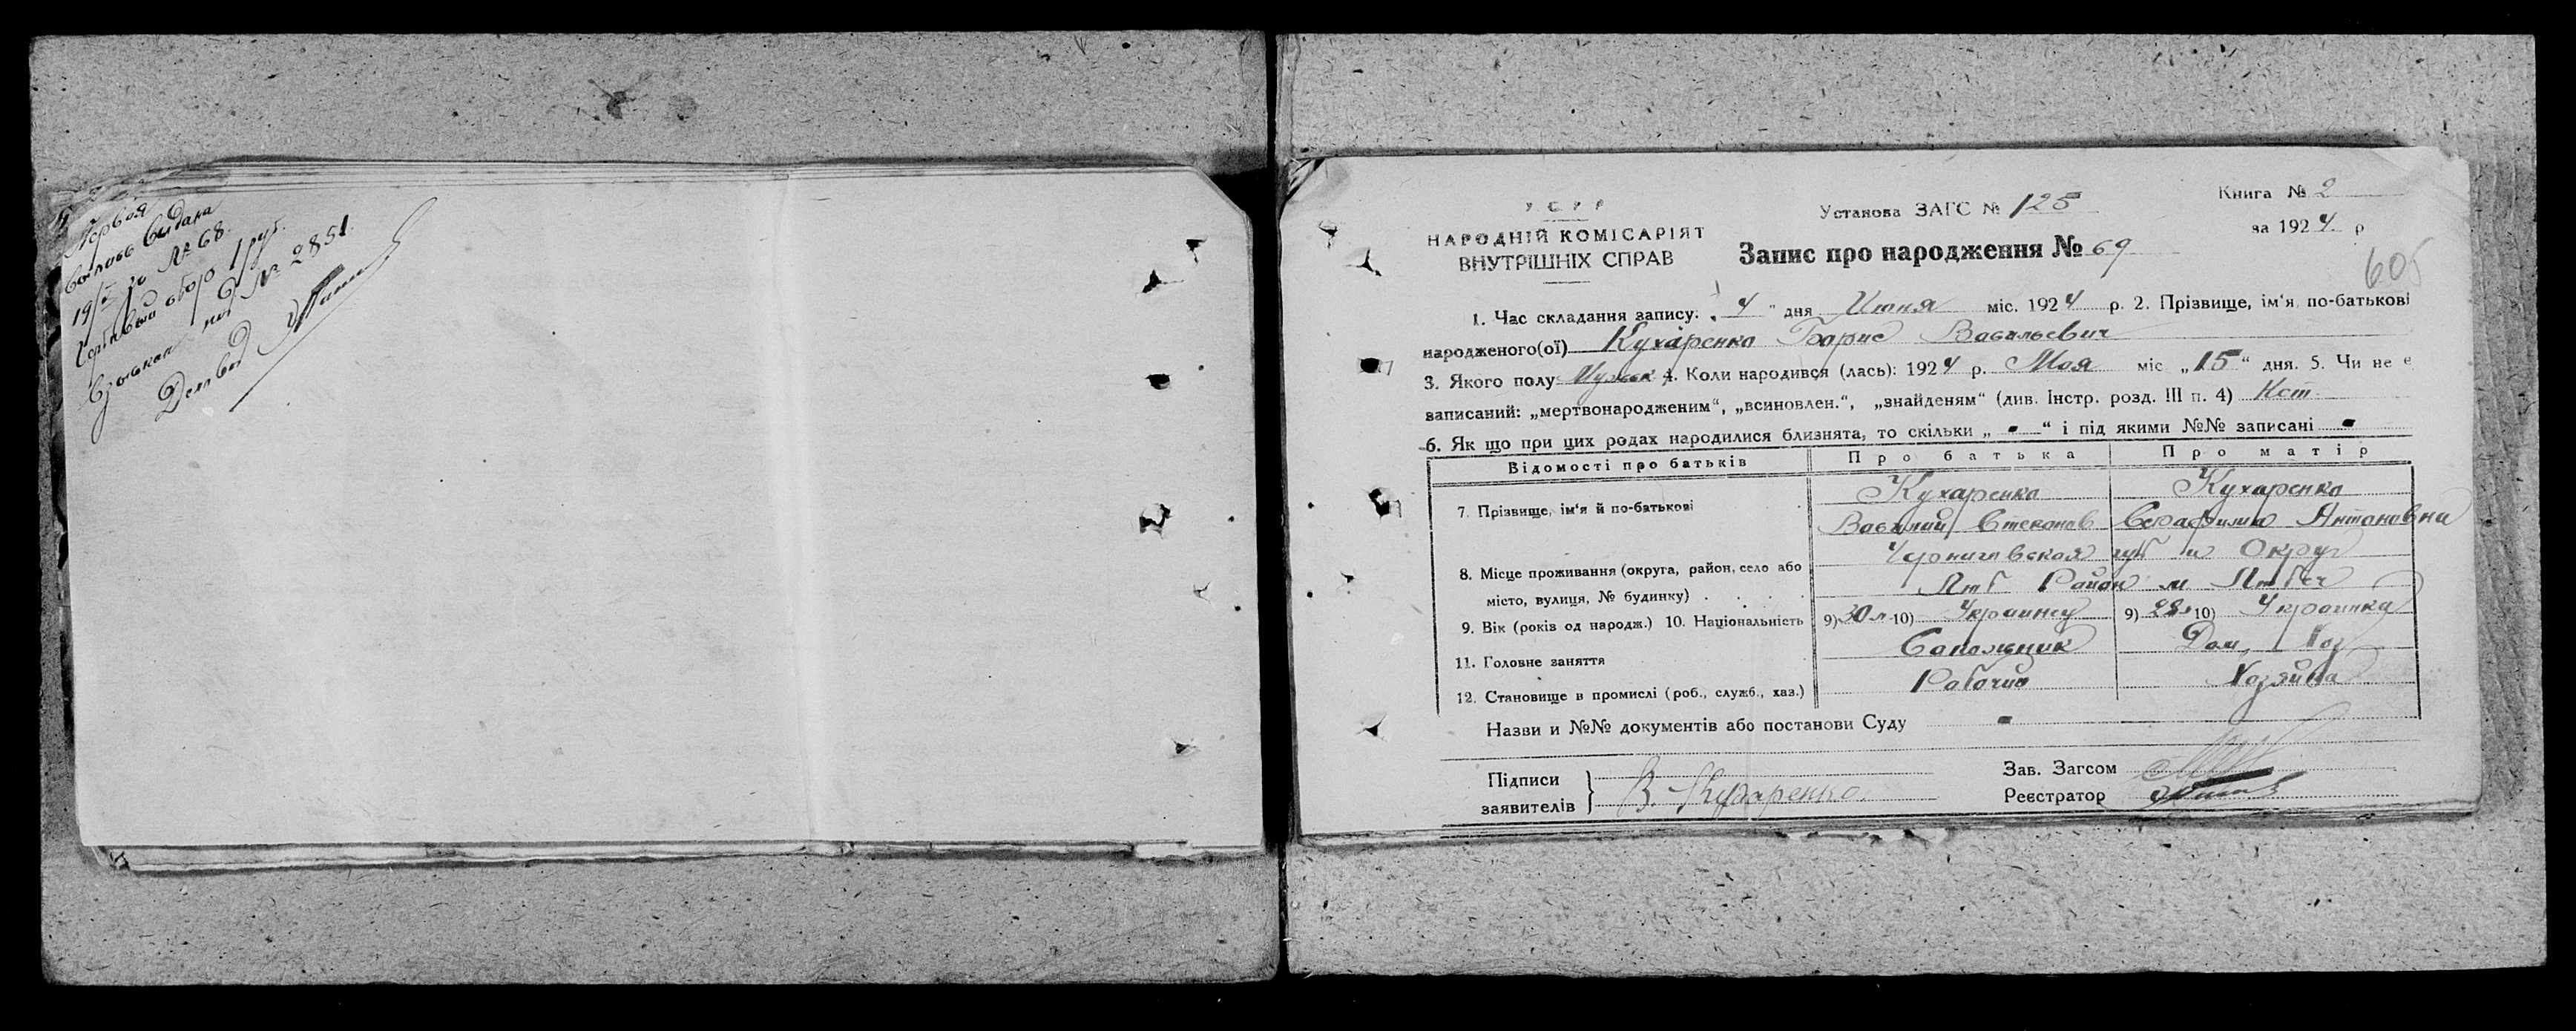 Первая
выпись выдана
19/I 30 № 68.
Гербовый сбор 1 руб.
взыскан под № 2851.
Деловод
У С Р Р
НАРОДНІЙ КОМІСАРІЯТ
ВНУТРІШНІХ СПРАВ
Установа ЗАГС № 125
Запис про народження № 69
Книга № 2
за 1924 р
605
1. Час складання запису: „4“ дня Июня міс. 1924 р. 2. Прізвище, ім'я, по-батькові
народженого(ої) Кухаренко Борис Васильевич
3. Якого полу Мужск 4. Коли народився (лась): 1924 р. Мая міс „15“ дня. 5. Чи не є
записаний: „мертвонародженим“, „всиновлен.“, „знайденям“ (див. Інстр. розд. III п. 4) Нет
6. Як що при цих родах народилися близнята, то скільки „ - “ і під якими №№ записані -
Відомості про батьків Про батька Про матір
7. Прізвище, ім'я й по-батькові Кухаренко Кухаренко
Василий Степанов Серафима Антоновна
8. Місце проживання (округа, район, село або Черниговская губ и Округ
місто, вулиця, № будинку) Люб Район м Любеч
9. Вік (років од народж.) 10. Національність 9) 30 л 10) Украинец 9) 28 л 10) Украинка
11. Головне заняття Сапожник Дом. Хоз
12. Становище в промислі (роб., служб., хаз.) Рабочий Хозяйка
Назви и №№ документів або постанови Суду -
Підписи
заявителів В. Кухаренко.
Зав. Загсом
Реєстратор